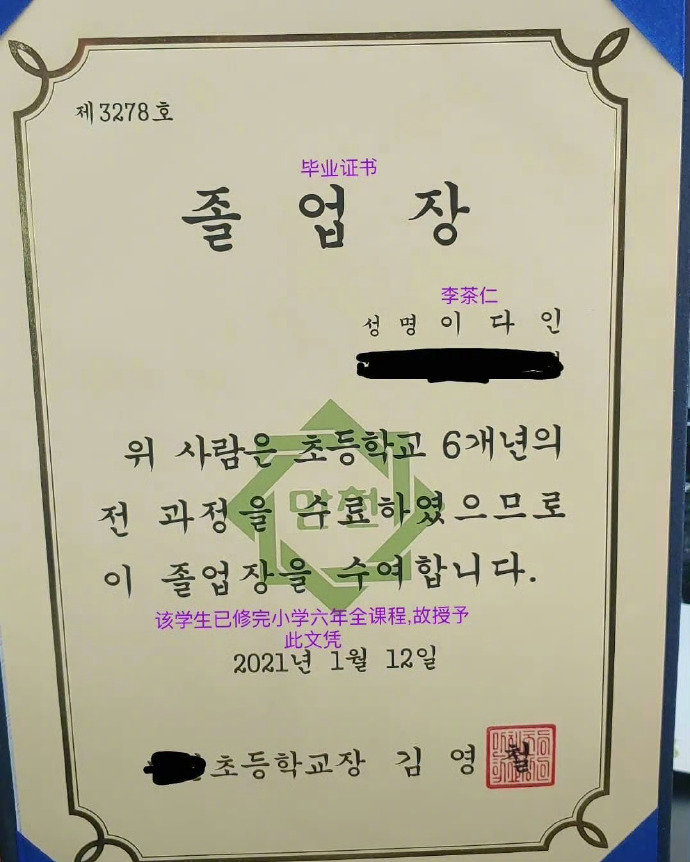 제3278호
毕业证书
졸 업 장
李茶仁
성 명 이 다 인
위 사람은 초등학교 6개년의
전 과정을 수료하였으므로
이 졸업장을 수여합니다.
该学生已修完小学六年全课程,故授予
此文凭
2021년 1월 12일
초등학교장 김 영 철